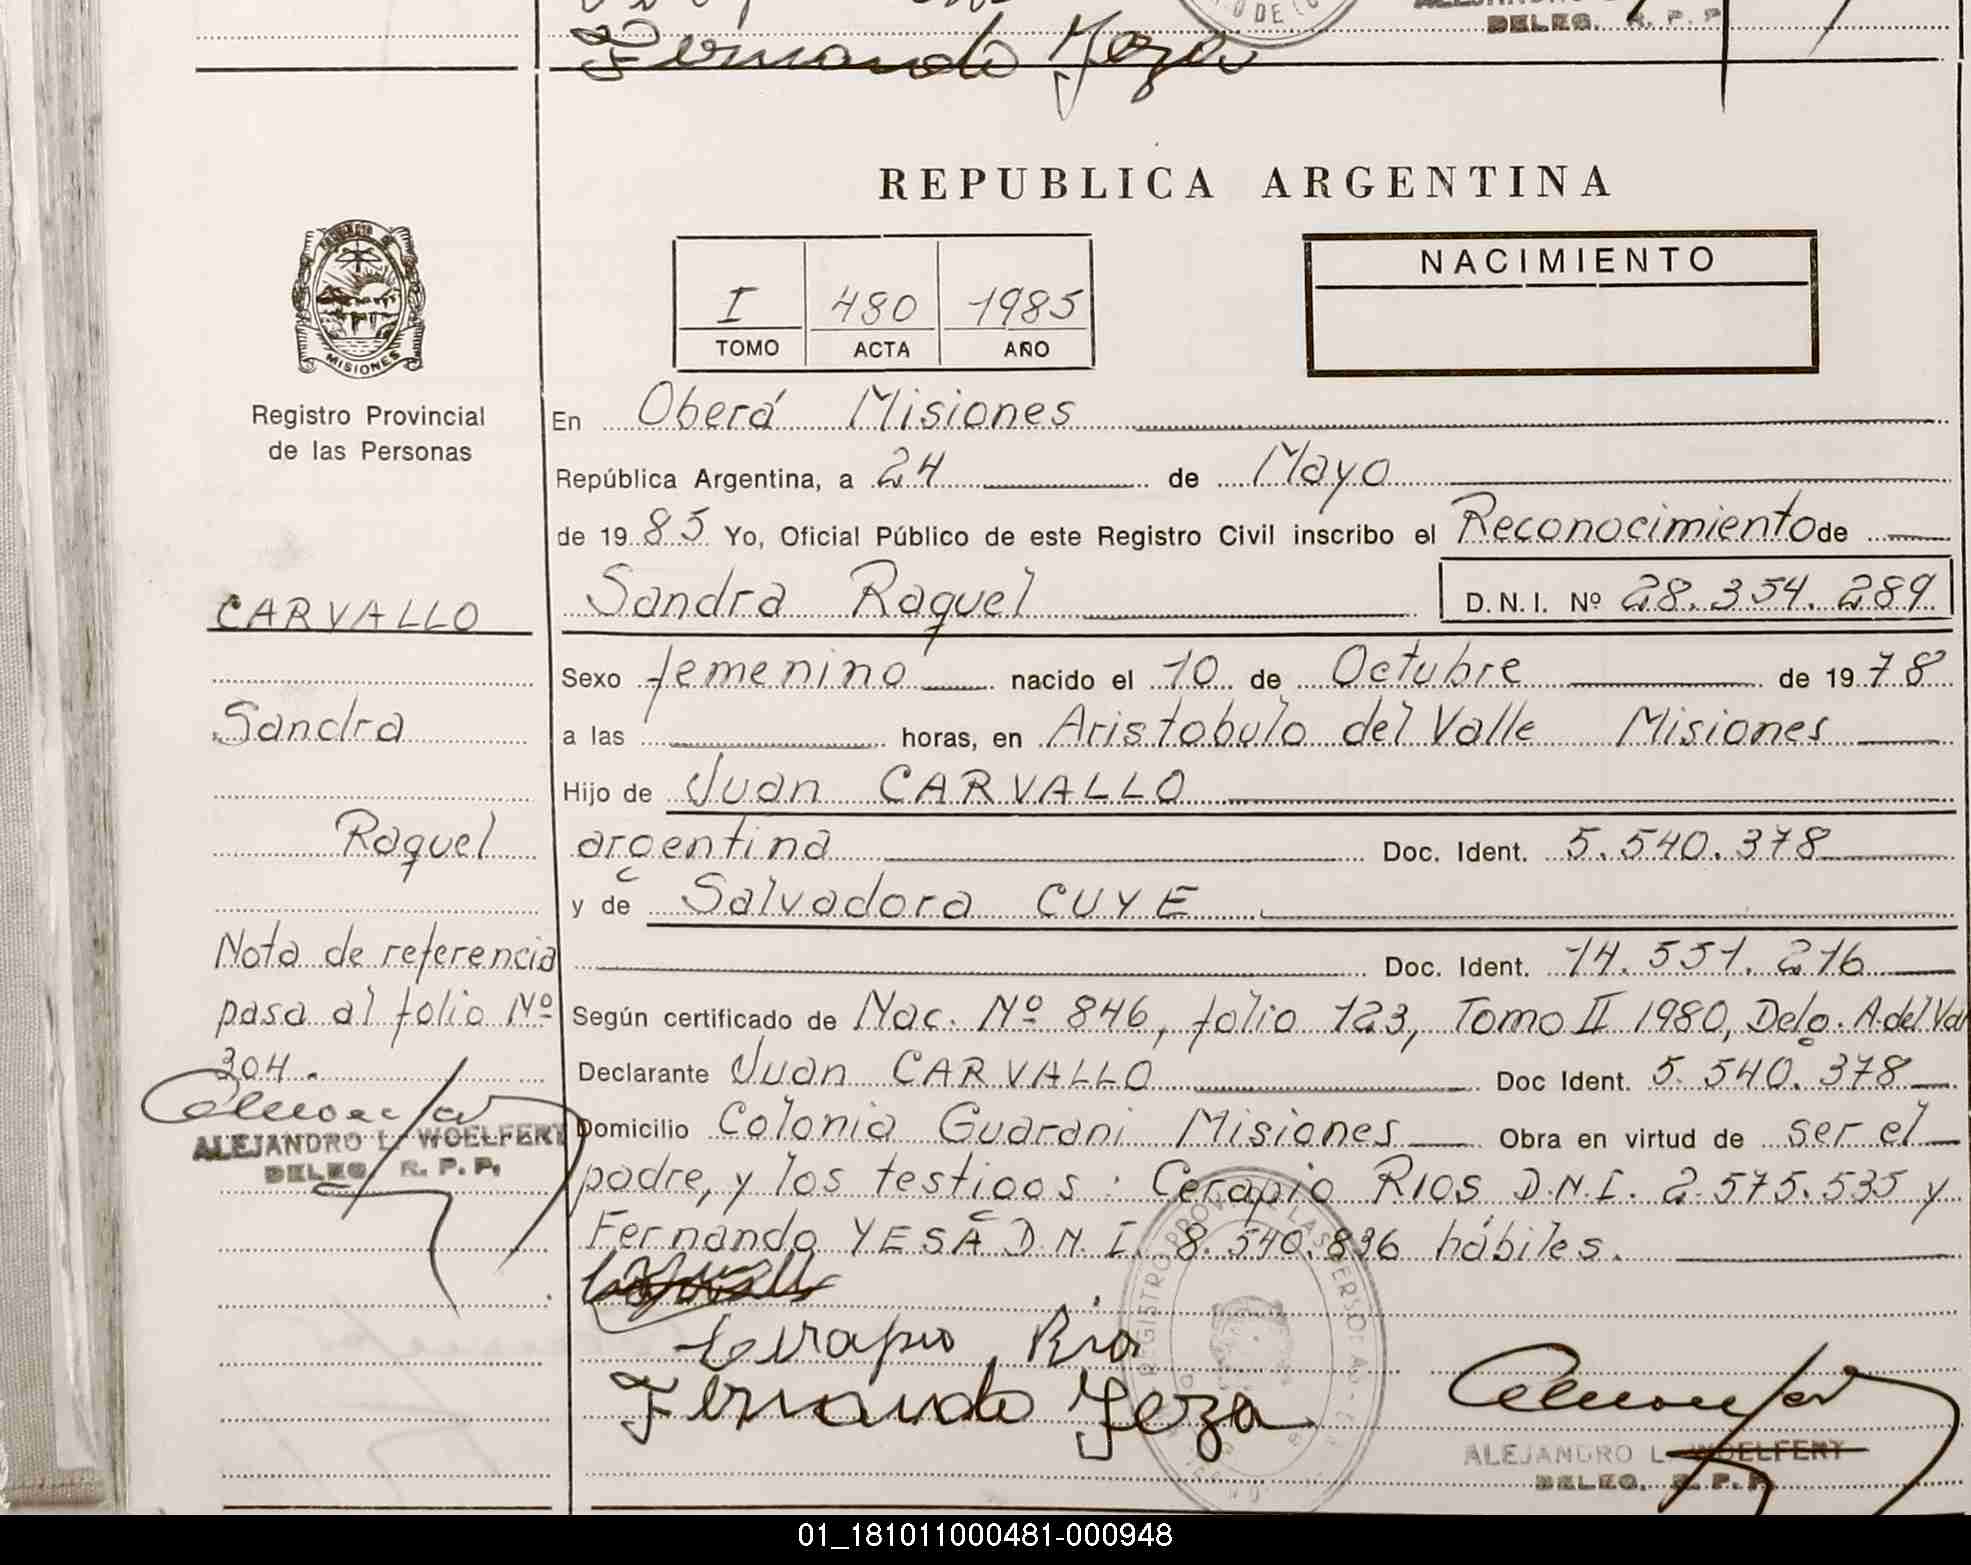 DELEG. R. P. P.
Fernando Yeza
REPUBLICA ARGENTINA
NACIMIENTO
I 480 1985
TOMO ACTA AÑO
MISIONES
Registro Provincial
de las Personas
En Oberá Misiones
República Argentina, a 24 de Mayo
de 1985 Yo, Oficial Público de este Registro Civil inscribo el Reconocimiento de
CARVALLO
Sandra Raquel D. N. I. Nº 28.354.289
Sexo femenino nacido el 10 de Octubre de 1978
Sandra
a las horas, en Aristobulo del Valle Misiones
Hijo de Juan CARVALLO
Raquel
argentina Doc. Ident. 5.540.378
y de Salvadora CUYE
Nota de referencia
Doc. Ident. 14.551.216
pasa al folio Nº
Según certificado de Nac. Nº 846, folio 123, Tomo II 1980, Delg. A. del Val
304.
Declarante Juan CARVALLO Doc Ident. 5.540.378
ALEJANDRO L. WOELFERT
DELEG R. P. P.
Domicilio Colonia Guarani Misiones Obra en virtud de ser el
padre, y los testigos: Cerapio RIOS D.N.I. 2.575.535 y
Fernando YESA D.N.I. 8.540.836 hábiles.
Cerapio Rio
Fernando Yeza
ALEJANDRO L. WOELFERT
DELEG. R. P. P.
01_181011000481-000948